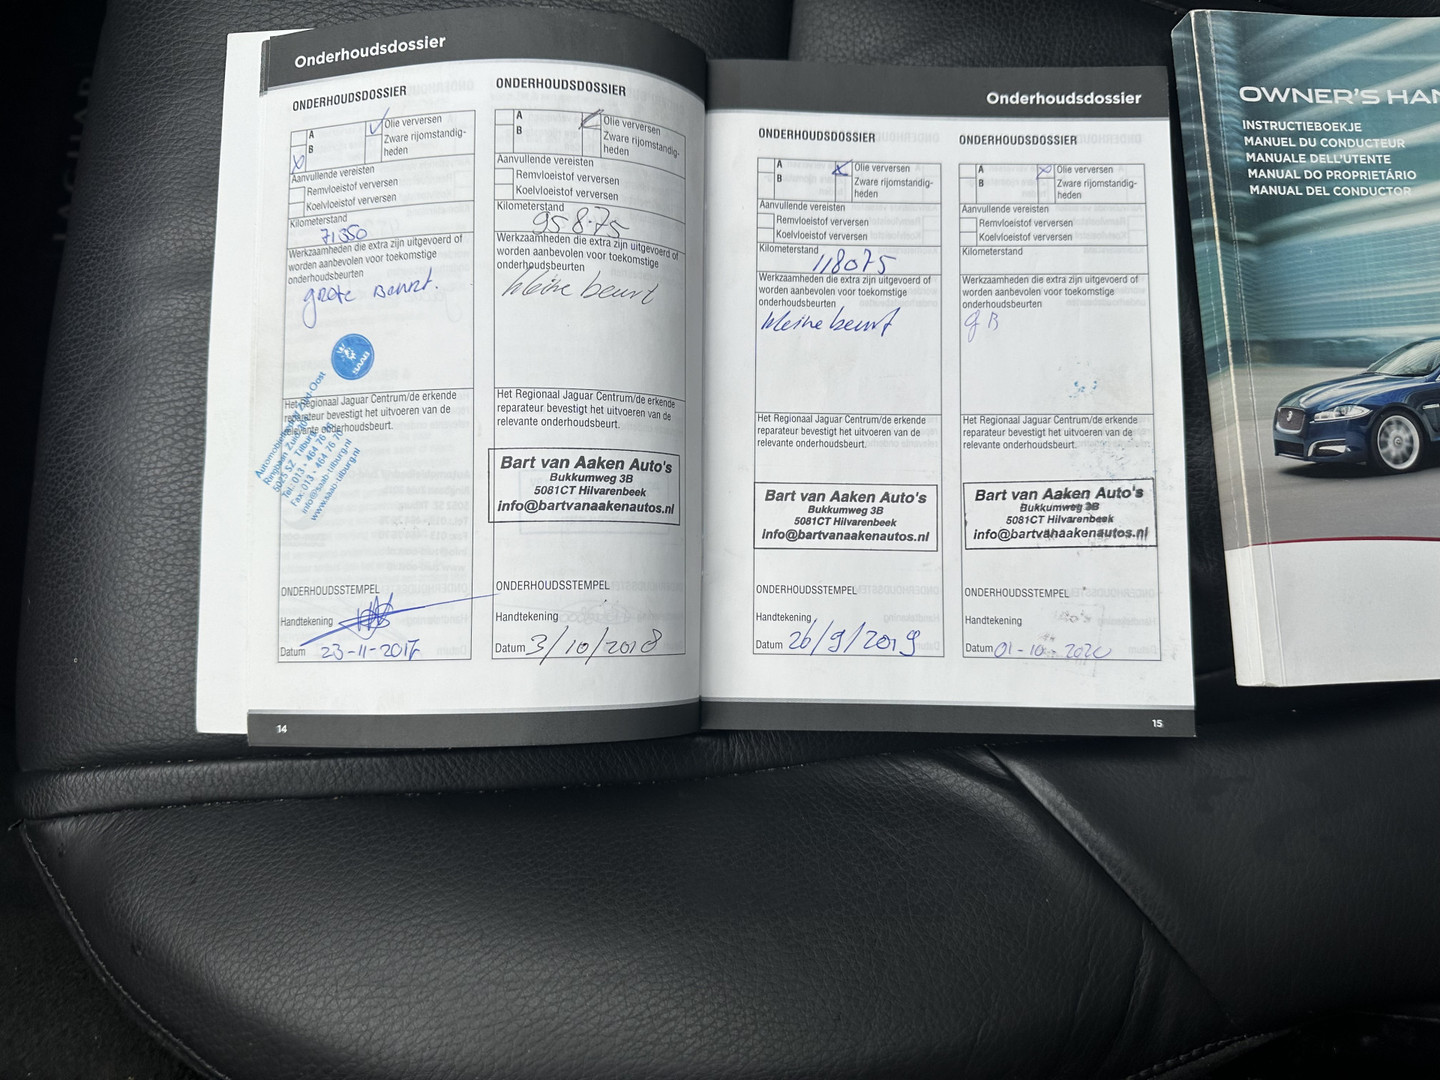 Onderhoudsdossier
ONDERHOUDSDOSSIER
A
B
Olie verversen
Zware rijomstandig-
heden
Aanvullende vereisten
Remvloeistof verversen
Koelvloeistof verversen
Kilometerstand
71350
Werkzaamheden die extra zijn uitgevoerd of
worden aanbevolen voor toekomstige
onderhoudsbeurten
grote Beurt.
SAAB
Het Regionaal Jaguar Centrum/de erkende
reparateur bevestigt het uitvoeren van de
relevante onderhoudsbeurt.
5025 SZ Tilburg
Tel: 013 - 464 76
Fax: 013 - 464 76 70
info@saab-tilburg.nl
www.saab-tilburg.nl
ONDERHOUDSSTEMPEL
Handtekening
Datum 23-11-2017
ONDERHOUDSDOSSIER
A
B
Olie verversen
Zware rijomstandig-
heden
Aanvullende vereisten
Remvloeistof verversen
Koelvloeistof verversen
Kilometerstand
95875
Werkzaamheden die extra zijn uitgevoerd of
worden aanbevolen voor toekomstige
onderhoudsbeurten
kleine beurt
Het Regionaal Jaguar Centrum/de erkende
reparateur bevestigt het uitvoeren van de
relevante onderhoudsbeurt.
Bart van Aaken Auto's
Bukkumweg 3B
5081CT Hilvarenbeek
info@bartvanaakenautos.nl
ONDERHOUDSSTEMPEL
Handtekening
Datum 3/10/2018
14
Onderhoudsdossier
ONDERHOUDSDOSSIER
A
B
Olie verversen
Zware rijomstandig-
heden
Aanvullende vereisten
Remvloeistof verversen
Koelvloeistof verversen
Kilometerstand
118075
Werkzaamheden die extra zijn uitgevoerd of
worden aanbevolen voor toekomstige
onderhoudsbeurten
kleine beurt
Het Regionaal Jaguar Centrum/de erkende
reparateur bevestigt het uitvoeren van de
relevante onderhoudsbeurt.
Bart van Aaken Auto's
Bukkumweg 3B
5081CT Hilvarenbeek
info@bartvanaakenautos.nl
ONDERHOUDSSTEMPEL
Handtekening
Datum 26/9/2019
ONDERHOUDSDOSSIER
A
B
Olie verversen
Zware rijomstandig-
heden
Aanvullende vereisten
Remvloeistof verversen
Koelvloeistof verversen
Kilometerstand
Werkzaamheden die extra zijn uitgevoerd of
worden aanbevolen voor toekomstige
onderhoudsbeurten
g B
Het Regionaal Jaguar Centrum/de erkende
reparateur bevestigt het uitvoeren van de
relevante onderhoudsbeurt.
Bart van Aaken Auto's
Bukkumweg 3B
5081CT Hilvarenbeek
info@bartvanaakenautos.nl
ONDERHOUDSSTEMPEL
Handtekening
Datum 01-10-2020
15
OWNER'S HAN
INSTRUCTIEBOEKJE
MANUEL DU CONDUCTEUR
MANUALE DELL'UTENTE
MANUAL DO PROPRIETÁRIO
MANUAL DEL CONDUCTOR
JAGUAR